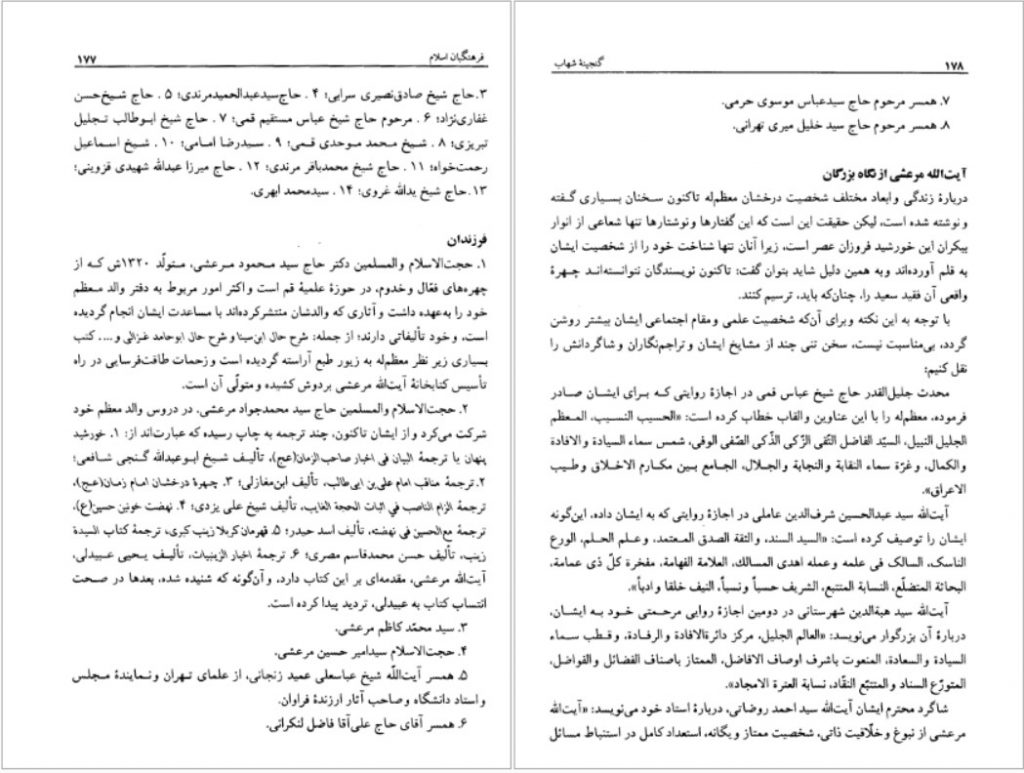 فرهنگبان اسلام ۱۷۷
۳. حاج شیخ صادق‌نصیری سرابی؛ ۴. حاج‌سیدعبدالحمیدمرندی؛ ۵. حاج شیخ‌حسن
غفاری‌نژاد؛ ۶. مرحوم حاج شیخ عباس مستقیم قمی؛ ۷. حاج شیخ ابوطالب تجلیل
تبریزی؛ ۸. شیخ محمد موحدی قمی؛ ۹. سیدرضا امامی؛ ۱۰. شیخ اسماعیل
رحمت‌خواه؛ ۱۱. حاج شیخ محمدباقر مرندی؛ ۱۲. حاج میرزا عبدالله شهیدی قزوینی؛
۱۳. حاج شیخ یدالله غروی؛ ۱۴. سیدمحمد ابهری.
فرزندان
۱. حجت‌الاسلام والمسلمین دکتر حاج سید محمود مرعشی، متولّد ۱۳۲۰ش که از
چهره‌های فعّال وخدوم، در حوزهٔ علمیهٔ قم است واکثر امور مربوط به دفتر والد معظم
خود را به‌عهده داشت و آثاری که والدشان منتشرکرده‌اند با مساعدت ایشان انجام گردیده
است، وخود تألیفاتی دارند؛ از جمله: شرح حال ابن‌سینا و شرح حال ابوحامد غزالی و.... کتب
بسیاری زیر نظر معظم‌له به زیور طبع آراسته گردیده است وزحمات طاقت‌فرسایی در راه
تأسیس کتابخانهٔ آیت‌الله مرعشی بردوش کشیده ومتولّی آن است.
۲. حجت‌الاسلام والمسلمین حاج سید محمدجواد مرعشی. در دروس والد معظم خود
شرکت می‌کرد و از ایشان تاکنون، چند ترجمه به چاپ رسیده که عبارت‌اند از: ۱. خورشید
پنهان یا ترجمهٔ البیان فی اخبار صاحب‌الزمان(عج)، تألیف شیخ ابوعبدالله گنجی شافعی؛
۲. ترجمهٔ مناقب امام علی‌بن ابی‌طالب، تألیف ابن‌مغازلی؛ ۳. چهرهٔ درخشان امام زمان(عج)،
ترجمهٔ الزام الناصب فی اثبات الحجة الغایب، تألیف شیخ علی یزدی؛ ۴. نهضت خونین حسین(ع)،
ترجمهٔ مع‌الحسین فی نهضته، تألیف اسد حیدر؛ ۵. قهرمان کربلا زینب کبری، ترجمهٔ کتاب السیدة
زینب، تألیف حسن محمدقاسم مصری؛ ۶. ترجمهٔ اخبار الزینبیات، تألیف یحیی عبیدلی،
آیت‌الله مرعشی، مقدمه‌ای بر این کتاب دارد، و آن‌گونه که شنیده شده، بعدها در صحت
انتساب کتاب به عبیدلی، تردید پیدا کرده است.
۳. سید محمّد کاظم مرعشی.
۴. حجت‌الاسلام سیدامیر حسین مرعشی.
۵. همسر آیت‌اللّه شیخ عباسعلی عمید زنجانی، از علمای تهران ونمایندهٔ مجلس
و استاد دانشگاه و صاحب آثار ارزندهٔ فراوان.
۶. همسر آقای حاج علی‌آقا فاضل لنکرانی.
گنجینهٔ شهاب ۱۷۸
۷. همسر مرحوم حاج سیدعباس موسوی حرمی.
۸. همسر مرحوم حاج سید خلیل میری تهرانی.
آیت‌الله مرعشی از نگاه بزرگان
دربارهٔ زندگی وابعاد مختلف شخصیت درخشان معظم‌له تاکنون سخنان بسیاری گفته
و نوشته شده است، لیکن حقیقت این است که این گفتارها ونوشتارها تنها شعاعی از انوار
بیکران این خورشید فروزان عصر است، زیرا آنان تنها شناخت خود را از شخصیت ایشان
به قلم آورده‌اند وبه همین دلیل شاید بتوان گفت: تاکنون نویسندگان نتوانسته‌اند چهرهٔ
واقعی آن فقید سعید را، چنان‌که باید، ترسیم کنند.
با توجه به این نکته وبرای آن‌که شخصیت علمی ومقام اجتماعی ایشان بیشتر روشن
گردد، بی‌مناسبت نیست، سخن تنی چند از مشایخ ایشان و تراجم‌نگاران و شاگردانش را
نقل کنیم:
محدث جلیل‌القدر حاج شیخ عباس قمی در اجازهٔ روایتی که برای ایشان صادر
فرموده، معظم‌له را با این عناوین والقاب خطاب کرده است: «الحسیب النسیب، المعظم
الجلیل النبیل، السیّد الفاضل التّقی الزّکی الذّکی الصّفی الوفی، شمس سماء السیادة والافادة
والکمال، وغرّة سماء النقابة والنجابة والجلال، الجامع بین مکارم الاخلاق وطیب
الاعراق».
آیت‌الله سید عبدالحسین شرف‌الدین عاملی در اجازهٔ روایتی که به ایشان داده، این‌گونه
ایشان را توصیف کرده است: «السید السند، والثقة الصدق المعتمد، وعلم الحلم، الورع
الناسک، السالک فی علمه وعمله اهدی المسالک، العلامة الفهامة، مفخرة کلّ ذی عمامة،
البحاثة المتضلّع، النسابة المتتبع، الشریف حسباً ونسباً، النیف خلقا وادباً».
آیت‌الله سید هبةالدین شهرستانی در دومین اجازهٔ روایی مرحمتی خود به ایشان،
دربارهٔ آن بزرگوار می‌نویسد: «العالم الجلیل، مرکز دائرةالافادة والرفادة، وقطب سماء
السیادة والسعادة، المنعوت باشرف اوصاف الافاضل، الممتاز باصناف الفضائل والفواضل،
المتورّع السناد والمتتبّع النقّاد، نسابة العترة الامجاد».
شاگرد محترم ایشان آیت‌الله سید احمد روضاتی، دربارهٔ استاد خود می‌نویسد: «آیت‌الله
مرعشی از نبوغ وخلّاقیت ذاتی، شخصیت ممتاز ویگانه، استعداد کامل در استنباط مسائل